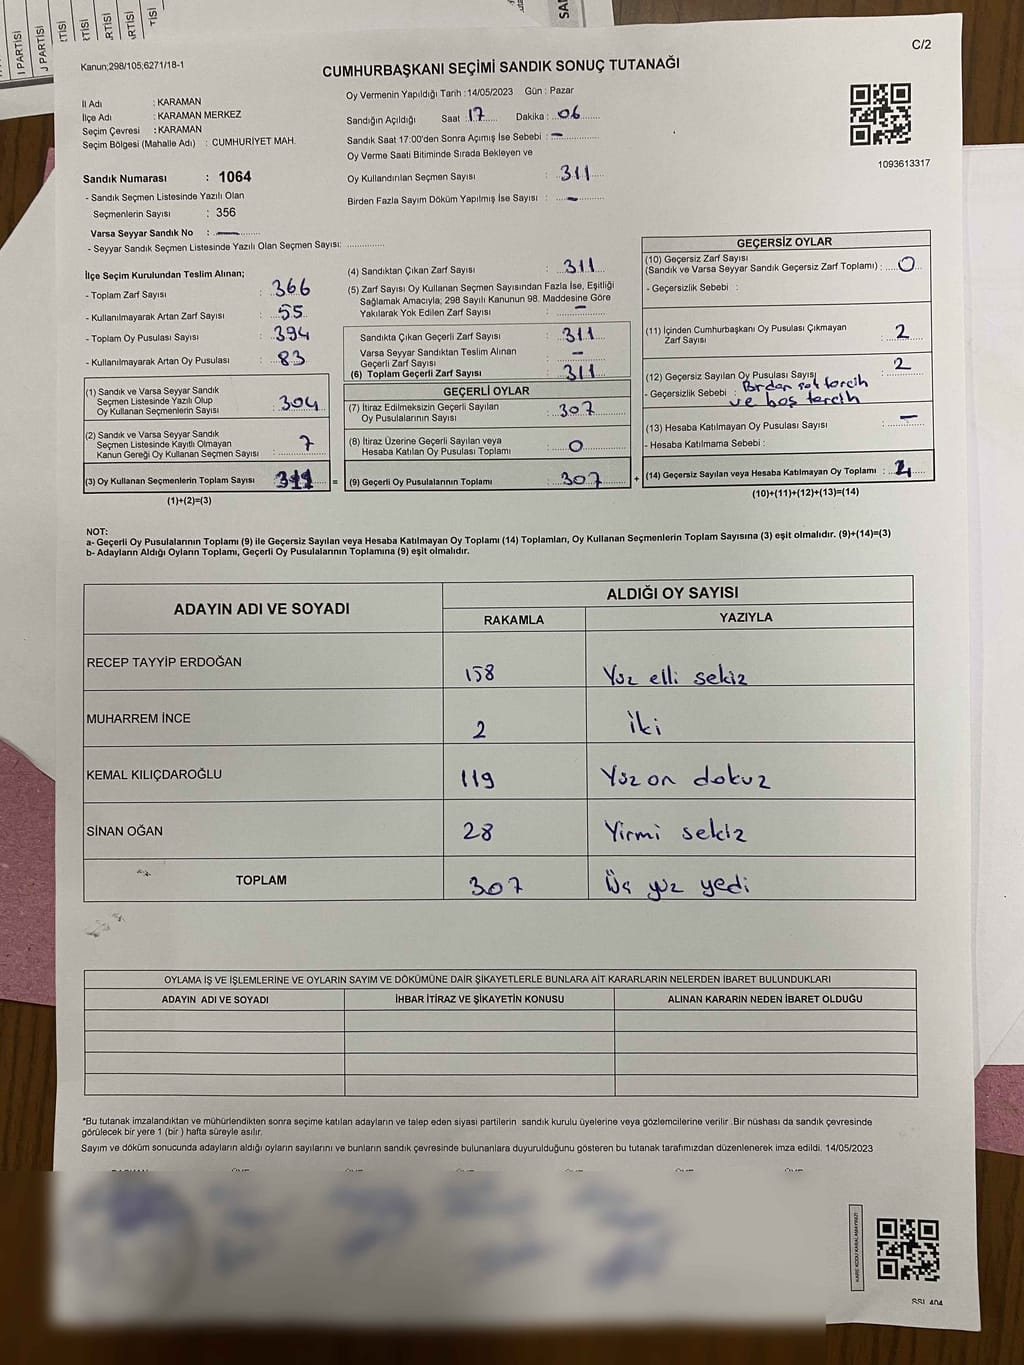 I PARTİSİ
J PARTİSİ
C/2
Kanun;298/105;6271/18-1
CUMHURBAŞKANI SEÇİMİ SANDIK SONUÇ TUTANAĞI
İl Adı : KARAMAN
İlçe Adı : KARAMAN MERKEZ
Seçim Çevresi : KARAMAN
Seçim Bölgesi (Mahalle Adı) : CUMHURİYET MAH.
Oy Vermenin Yapıldığı Tarih :14/05/2023 Gün : Pazar
Sandığın Açıldığı Saat : 17 Dakika : 06
Sandık Saat 17:00'den Sonra Açımış İse Sebebi : –
Oy Verme Saati Bitiminde Sırada Bekleyen ve
Oy Kullandırılan Seçmen Sayısı : 311
Birden Fazla Sayım Döküm Yapılmış İse Sayısı : –
1093613317
Sandık Numarası : 1064
- Sandık Seçmen Listesinde Yazılı Olan
Seçmenlerin Sayısı : 356
Varsa Seyyar Sandık No : –
- Seyyar Sandık Seçmen Listesinde Yazılı Olan Seçmen Sayısı:
İlçe Seçim Kurulundan Teslim Alınan;
- Toplam Zarf Sayısı : 366
- Kullanılmayarak Artan Zarf Sayısı : 55
- Toplam Oy Pusulası Sayısı : 394
- Kullanılmayarak Artan Oy Pusulası : 83
(1) Sandık ve Varsa Seyyar Sandık
Seçmen Listesinde Yazılı Olup
Oy Kullanan Seçmenlerin Sayısı : 304
(2) Sandık ve Varsa Seyyar Sandık
Seçmen Listesinde Kayıtlı Olmayan
Kanun Gereği Oy Kullanan Seçmen Sayısı : 7
(3) Oy Kullanan Seçmenlerin Toplam Sayısı : 311 =
(1)+(2)=(3)
(4) Sandıktan Çıkan Zarf Sayısı : 311
(5) Zarf Sayısı Oy Kullanan Seçmen Sayısından Fazla İse, Eşitliği
Sağlamak Amacıyla; 298 Sayılı Kanunun 98. Maddesine Göre
Yakılarak Yok Edilen Zarf Sayısı : –
Sandıkta Çıkan Geçerli Zarf Sayısı : 311
Varsa Seyyar Sandıktan Teslim Alınan
Geçerli Zarf Sayısı : –
(6) Toplam Geçerli Zarf Sayısı : 311
GEÇERLİ OYLAR
(7) İtiraz Edilmeksizin Geçerli Sayılan
Oy Pusulalarının Sayısı : 307
(8) İtiraz Üzerine Geçerli Sayılan veya
Hesaba Katılan Oy Pusulası Toplamı : 0
(9) Geçerli Oy Pusulalarının Toplamı : 307 +
GEÇERSİZ OYLAR
(10) Geçersiz Zarf Sayısı
(Sandık ve Varsa Seyyar Sandık Geçersiz Zarf Toplamı) : 0
- Geçersizlik Sebebi :
(11) İçinden Cumhurbaşkanı Oy Pusulası Çıkmayan
Zarf Sayısı : 2
(12) Geçersiz Sayılan Oy Pusulası Sayısı : 2
- Geçersizlik Sebebi : Birden tercih
ve boş tercih
(13) Hesaba Katılmayan Oy Pusulası Sayısı : –
- Hesaba Katılmama Sebebi :
(14) Geçersiz Sayılan veya Hesaba Katılmayan Oy Toplamı : 4
(10)+(11)+(12)+(13)=(14)
NOT:
a- Geçerli Oy Pusulalarının Toplamı (9) ile Geçersiz Sayılan veya Hesaba Katılmayan Oy Toplamı (14) Toplamları, Oy Kullanan Seçmenlerin Toplam Sayısına (3) eşit olmalıdır. (9)+(14)=(3)
b- Adayların Aldığı Oyların Toplamı, Geçerli Oy Pusulalarının Toplamına (9) eşit olmalıdır.
ADAYIN ADI VE SOYADI
ALDIĞI OY SAYISI
RAKAMLA YAZIYLA
RECEP TAYYİP ERDOĞAN 158 Yüz elli sekiz
MUHARREM İNCE 2 İki
KEMAL KILIÇDAROĞLU 119 Yüz on dokuz
SİNAN OĞAN 28 Yirmi sekiz
TOPLAM 307 Üç yüz yedi
OYLAMA İŞ VE İŞLEMLERİNE VE OYLARIN SAYIM VE DÖKÜMÜNE DAİR ŞİKAYETLERLE BUNLARA AİT KARARLARIN NELERDEN İBARET BULUNDUKLARI
ADAYIN ADI VE SOYADI İHBAR İTİRAZ VE ŞİKAYETİN KONUSU ALINAN KARARIN NEDEN İBARET OLDUĞU
*Bu tutanak imzalandıktan ve mühürlendikten sonra seçime katılan adayların ve talep eden siyasi partilerin sandık kurulu üyelerine veya gözlemcilerine verilir .Bir nüshası da sandık çevresinde
görülecek bir yere 1 (bir ) hafta süreyle asılır.
Sayım ve döküm sonucunda adayların aldığı oyların sayılarını ve bunların sandık çevresinde bulunanlara duyurulduğunu gösteren bu tutanak tarafımızdan düzenlenerek imza edildi. 14/05/2023
KARE KODU KARALAMAYINIZ!